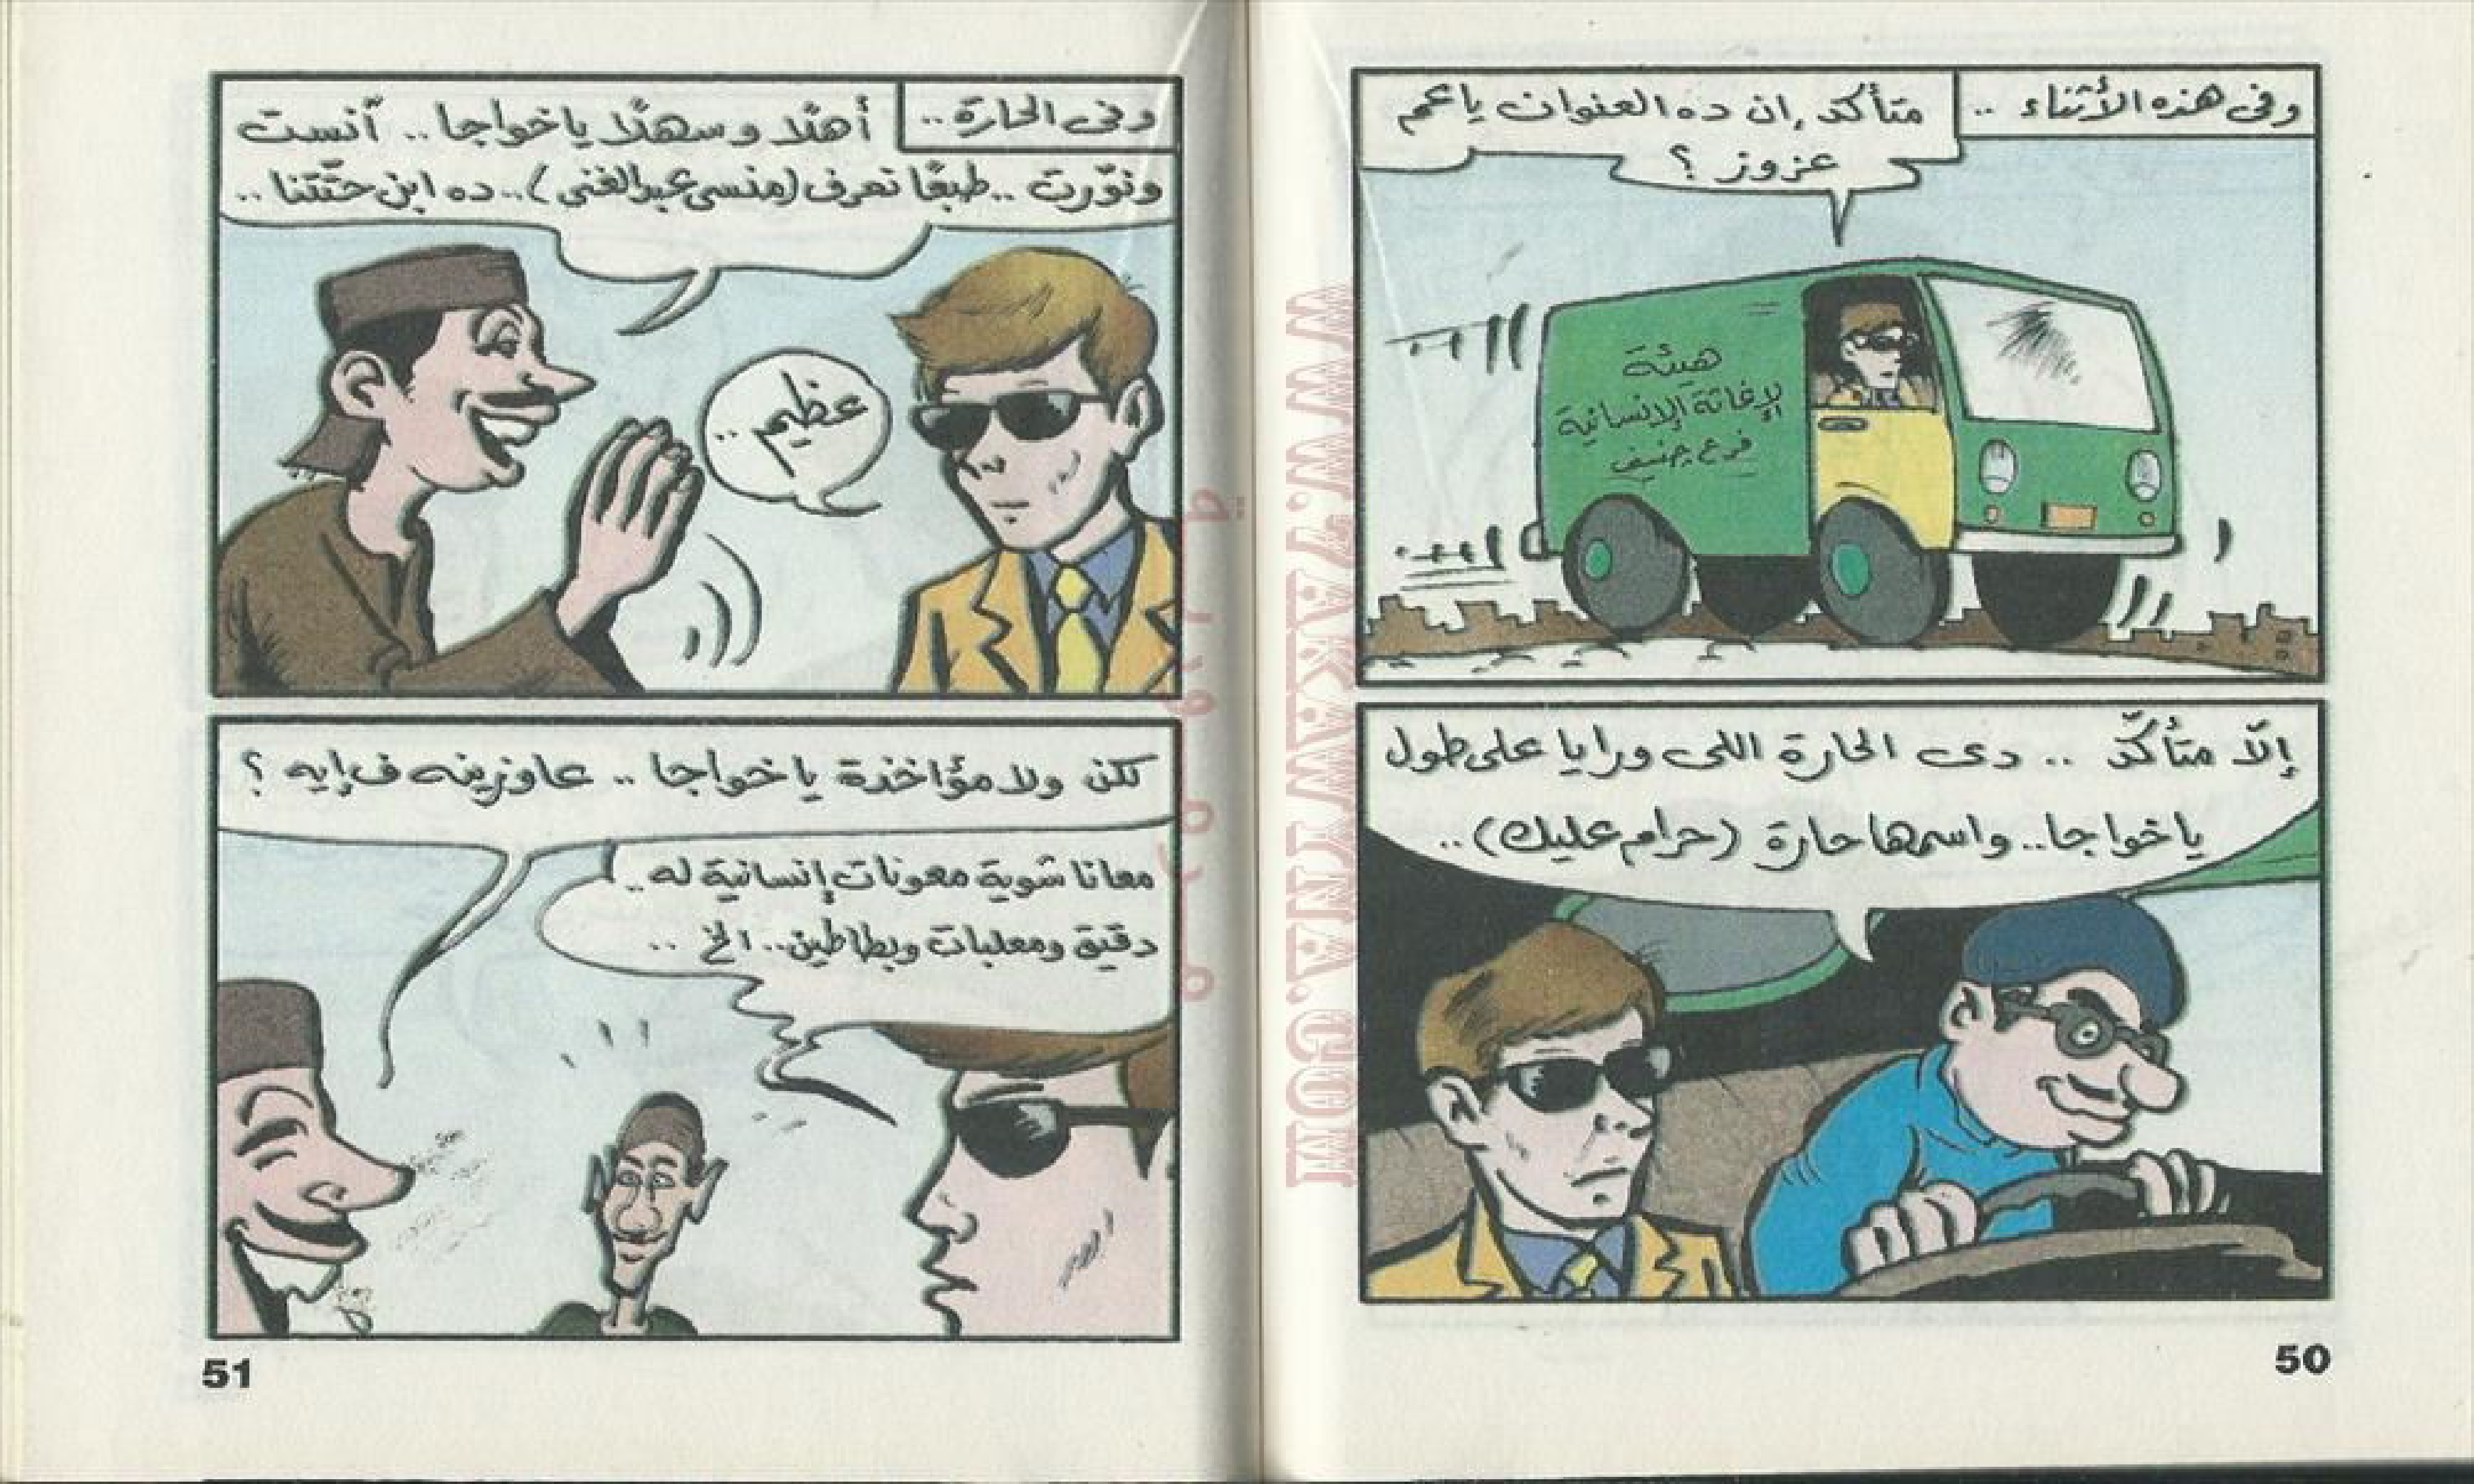 وفى هذه الأثناء ..
متأكد إن ده العنوان ياعم
عزوز ؟
هيئة
الإغاثة الإنسانية
فرع جنيف
إلّا متأكّد .. دى الحارة اللى ورايا على طول
ياخواجا.. واسمها حارة (حرام عليك) ..
50
وفى الحارة ..
أهلًا وسهلًا ياخواجا .. آنست
ونوّرت .. طبعًا تعرف (منسى عبد الغنى) .. ده ابن حتّتنا ..
عظيم ..
لكن ولا مؤاخذة ياخواجا .. عاوزينه ف إيه ؟
معانا شوية معونات إنسانية له ..
دقيق ومعلبات وبطاطين .. الخ ..
51